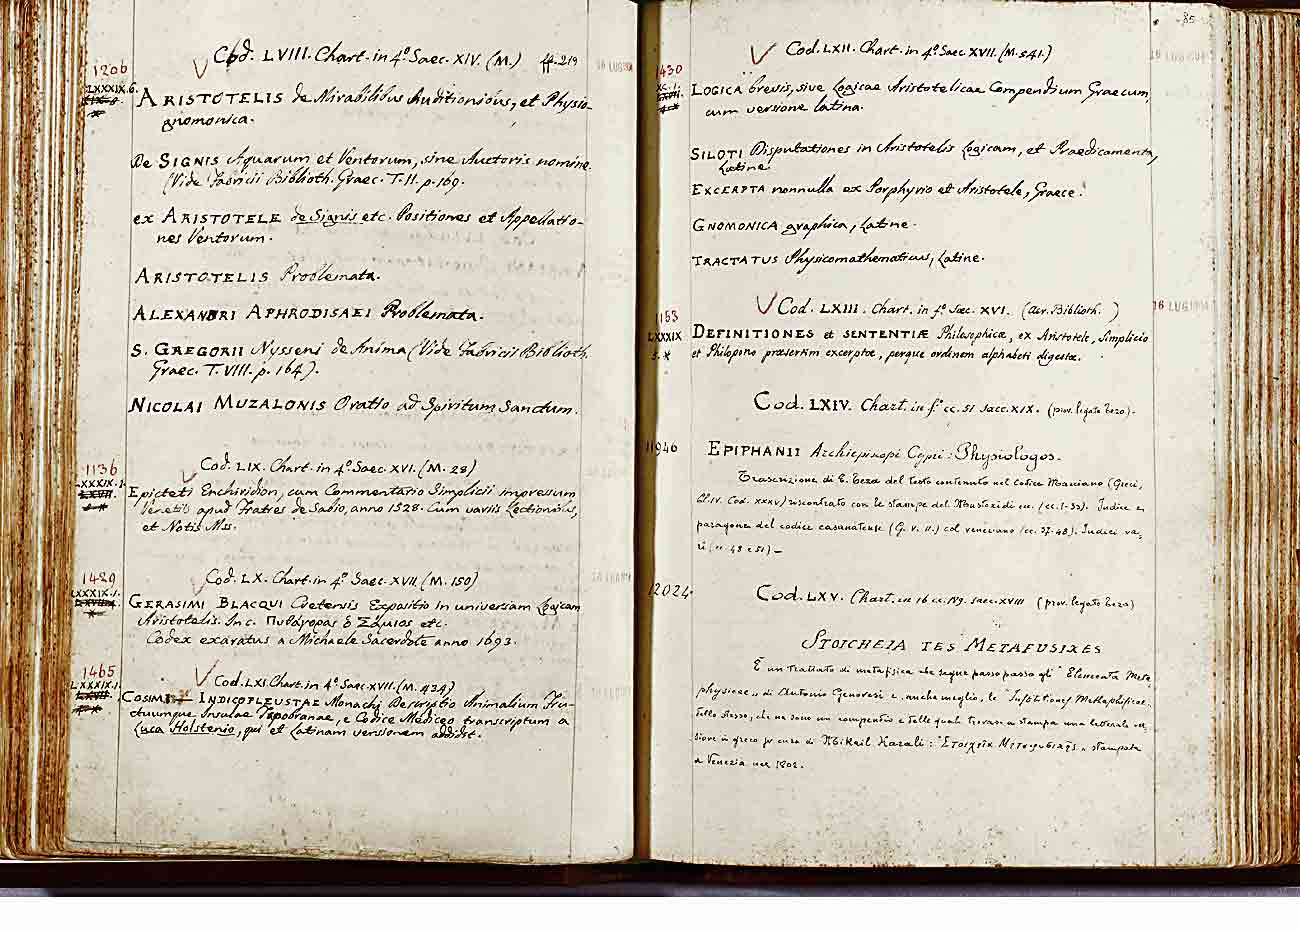 Cod. LVIII. Chart. in 4.º Saec. XIV. (M.) ff. 219
1206
LXXXIX.6.
ARISTOTELIS de Mirabilibus Auditionibus, et Physio-
gnomonica.
De SIGNIS Aquarum et Ventorum, sine Auctoris nomine.
(Vide Fabricii Biblioth. Graec. T. II. p. 169.
ex ARISTOTELE de Signis etc. Positiones et Appellatio-
nes Ventorum.
ARISTOTELIS Problemata.
ALEXANDRI APHRODISAEI Problemata.
S. GREGORII Nysseni de Anima (Vide Fabricii Biblioth.
Graec. T. VIII. p. 164).
NICOLAI MUZALONIS Oratio ad Spiritum Sanctum.
1136
Cod. LIX. Chart. in 4.º Saec. XVI. (M. 28)
LXXXIX.1.
Epicteti Enchiridion, cum Commentario Simplicii impressum
Venetiis apud Fratres de Sabio, anno 1528. Cum variis Lectionibus,
et Notis Mss.
1429
Cod. LX. Chart. in 4.º Saec. XVII. (M. 150)
LXXXIX.1.
GERASIMI BLACQUI Cretensis Expositio in universam Logicam
Aristotelis. Inc. Πυθάγορας ὁ Σάμιος etc.
Codex exaratus a Michaele Sacerdote anno 1693.
1465
Cod. LXI Chart. in 4.º Saec. XVII. (M. 434)
LXXXIX.1.
COSIMI INDICOPLEUSTAE Monachi Descriptio Animalium Fru-
ctuumque Insulae Tapobranae, e Codice Mediceo transcriptum a
Luca Holstenio, qui et Latinam versionem addidit.
85
Cod. LXII. Chart. in 4.º Saec. XVII. (M. 541.)
1430
XC. 1.
LOGICA brevis, sive Logicae Aristotelicae Compendium Graecum,
cum versione latina.
SILOTI Disputationes in Aristotelis Logicam, et Praedicamenta,
Latine.
EXCERPTA nonnulla ex Porphyrio et Aristotele, Graece.
GNOMONICA graphica, Latine.
TRACTATUS Physicomathematicus, Latine.
16 LUG
Cod. LXIII. Chart. in f.º Saec. XVI. (Aer. Biblioth. )
1153
LXXXIX
5.*
DEFINITIONES et SENTENTIÆ Philosophicæ, ex Aristotele, Simplicio
et Philopono præsertim excerptæ, perque ordinem alphabeti digestæ.
Cod. LXIV. Chart. in f.º cc. 51 saec. XIX. (prov. legato Teza).
11946
EPIPHANII Archiepiscopi Cypri: Physiologos.
Trascrizione di E. Teza del testo contenuto nel codice Marciano (Greci,
Cl. IV. Cod. XXXV) riscontrato con le stampe del Mustoxidi ecc. (cc. 1-32). Indice e
paragone del codice casanatense (G. V. 11.) col veneziano (cc. 37-48). Indici va-
ri (cc. 48 e 51) —
12024
Cod. LXV. Chart. in 16 cc. 149. saec. XVIII (prov. legato Teza)
STOICHEIA TES METAFUSIKES
È un trattato di metafisica che segue passo passo gli "Elementa Meta-
physicae" di Antonio Genovesi e, anche meglio, le "Institutiones Metaphysicae"
dello stesso, che ne sono un compendio e delle quali trovasi a stampa una letterale ver-
sione in greco per cura di Mikail Kazali: "Στοιχεῖα Μεταφυσικῆς" stampata
a Venezia nel 1802.